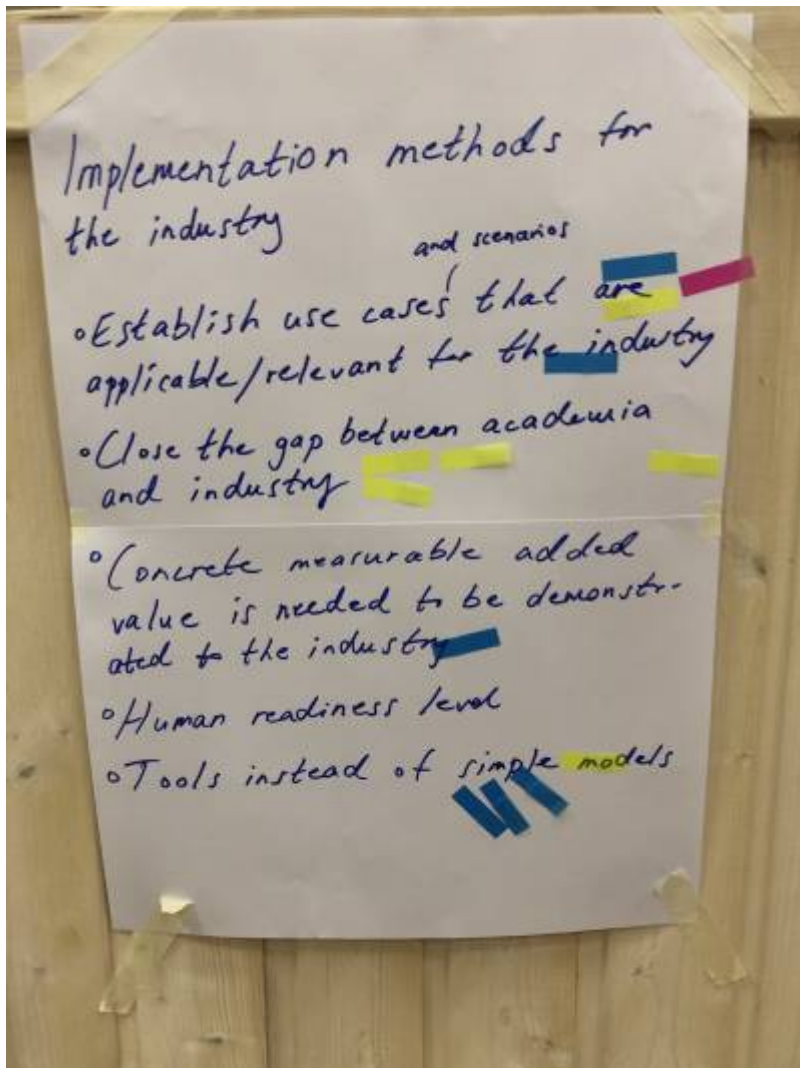 Implementation methods for
the industry
and scenarios
◦Establish use cases that are
applicable/relevant for the industry
◦Close the gap between academia
and industry
◦Concrete measurable added
value is needed to be demonstr-
ated to the industry
◦Human readiness level
◦Tools instead of simple models